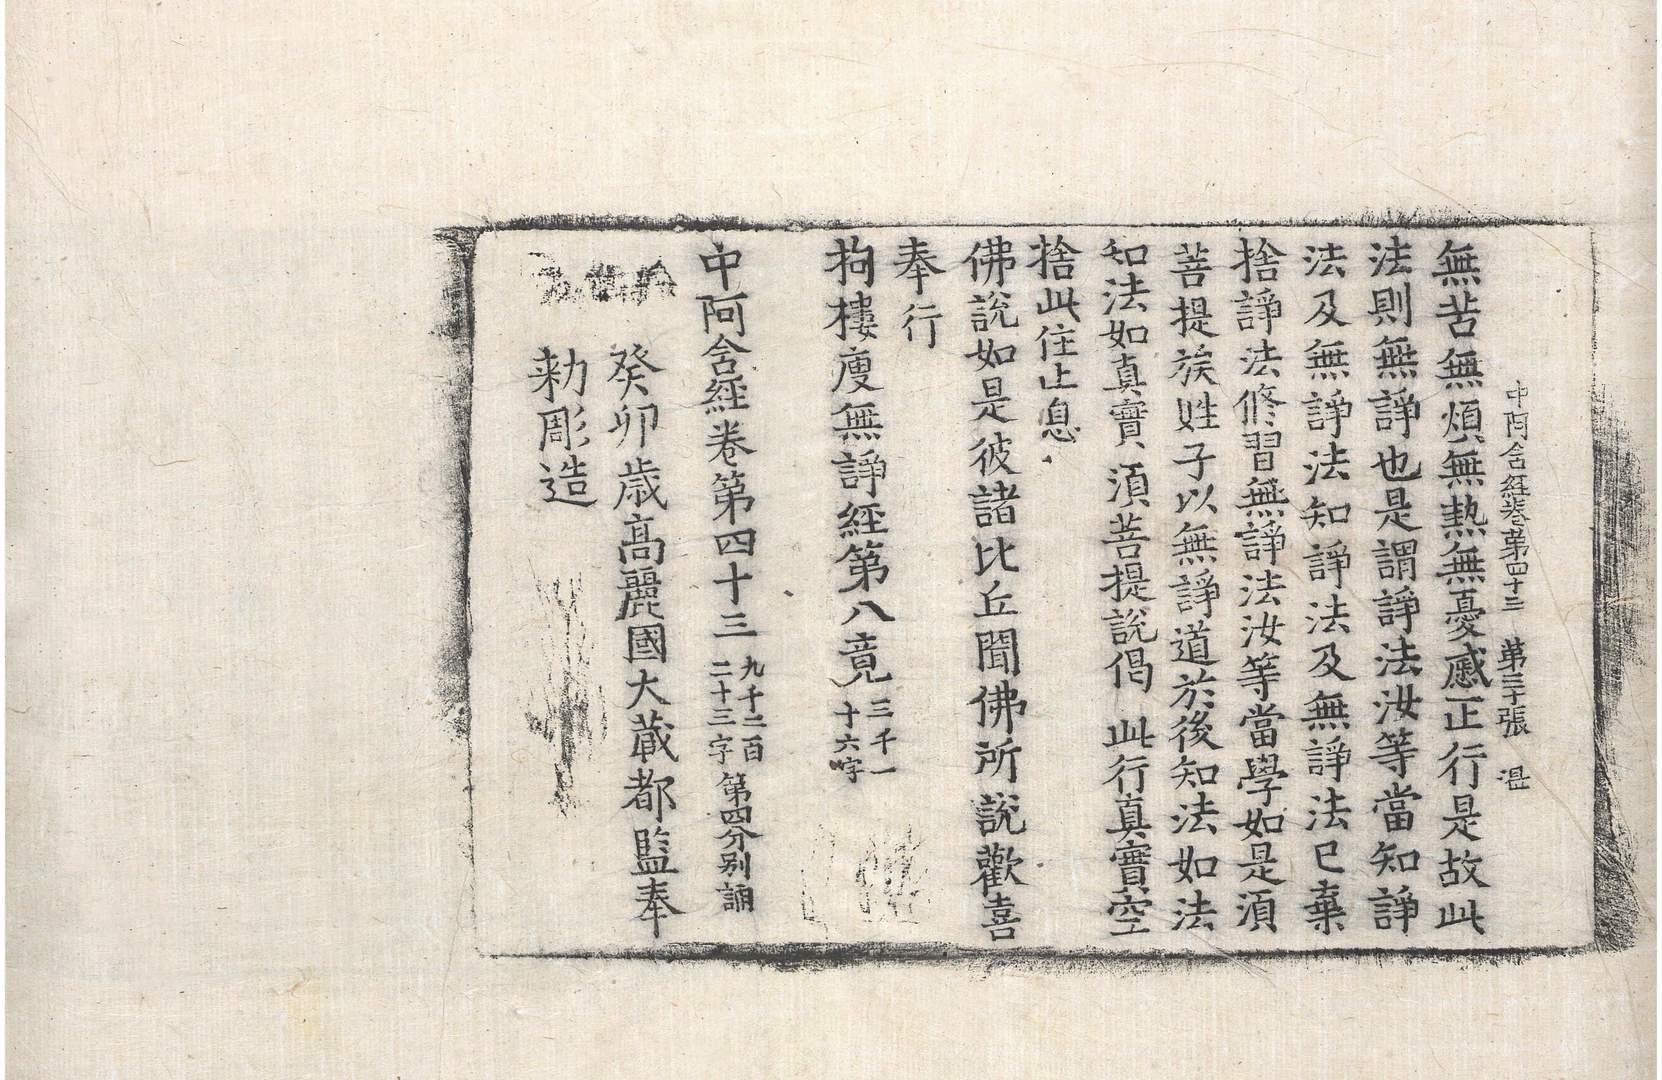 中阿含經卷第四十三 第三十張 温
無苦無煩無熱無憂慼正行是故此
法則無諍也是謂諍法汝等當知諍
法及無諍法知諍法及無諍法已棄
捨諍法修習無諍法汝等當學如是須
菩提族姓子以無諍道於後知法如法
知法如真實須菩提說偈 此行真實空
捨此住止息
佛說如是彼諸比丘聞佛所說歡喜
奉行
拘樓瘦無諍經第八竟 三千一十六字
中阿含經卷第四十三 九千二百二十三字 第四分別誦
癸卯歲高麗國大藏都監奉
勅彫造